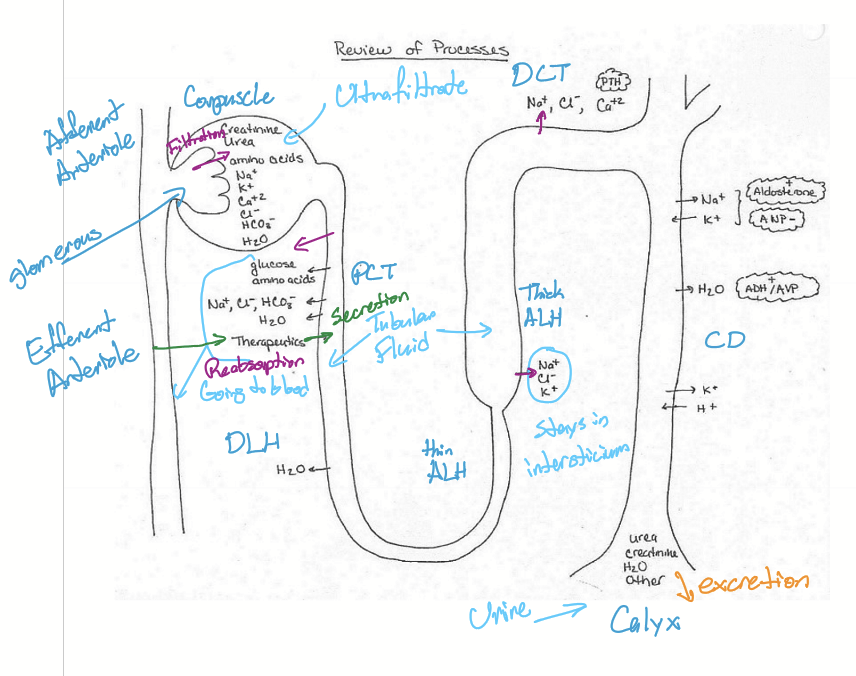 Review of Processes
Corpuscle
Ultrafiltrate
DCT
PTH
Na⁺, Cl⁻, Ca⁺²
Afferent
Arteriole
Filtration
creatinine
urea
amino acids
Na⁺
K⁺
Ca⁺²
Cl⁻
HCO₃⁻
H₂O
glomerous
glucose
amino acids
PCT
Na⁺, Cl⁻, HCO₃⁻
H₂O
Secretion
Therapeutics
Reabsorption
Going to blood
Efferent
Arteriole
Tubular
Fluid
Thick
ALH
Na⁺
Cl⁻
K⁺
stays in
intersticium
Na⁺
K⁺
+
Aldosterone
ANP -
H₂O
+
ADH/AVP
CD
K⁺
H⁺
DLH
H₂O
thin
ALH
urea
creatinine
H₂O
other
excretion
Urine
Calyx